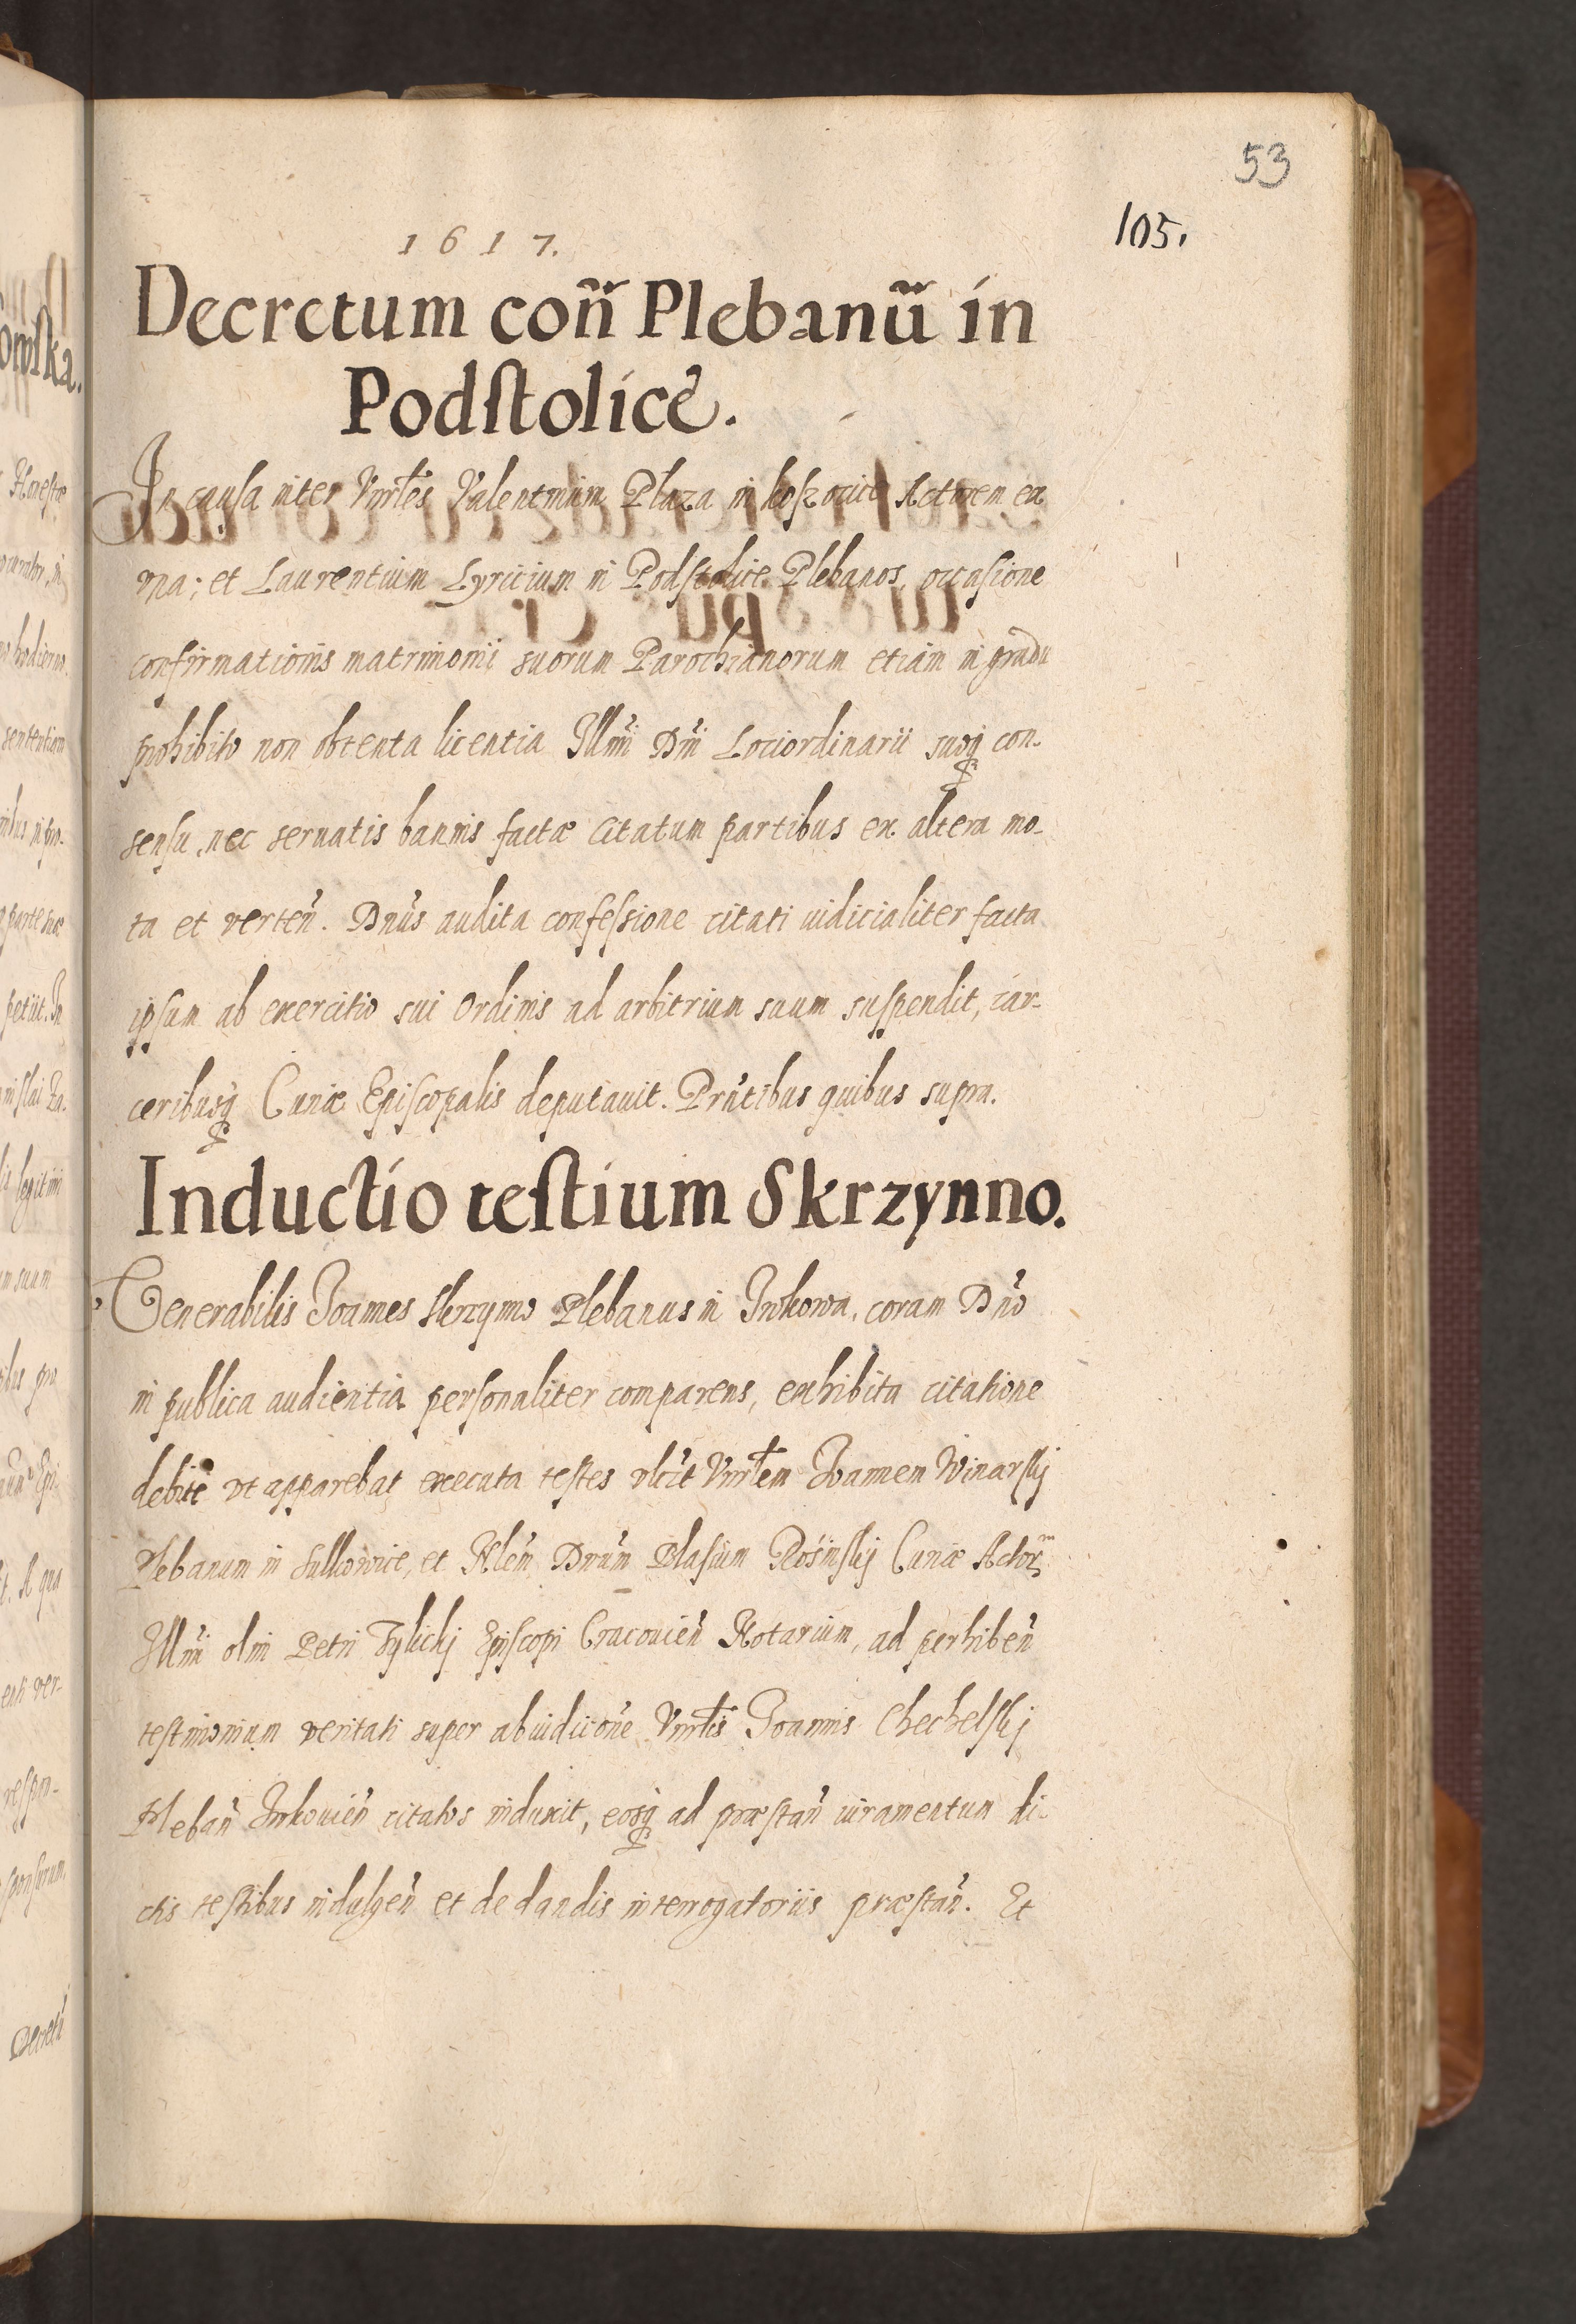 53
105.
1617.
Decretum coñ Plebanũ in
Podstolice.
In causa inter Vnrłes Valentinum Plaza in Actorem ex
vna; et Laurentium Lyricium in Podstolice Plebanos, occasione
confirmationis matrimonii suorum Parochianorum etiam in gradu
prohibito non obtenta licentia Illmi Dni Lociordinarii suoq con-
sensu, nec seruatis bannis factæ citatum partibus ex altera mo-
ta et verteñ. Dnus audita confessione citati iudicialiter facta
ipsum ab exercitio sui Ordinis ad arbitrium suum suspendit, car-
ceribusq Curiæ Episcopalis deputauit. Prñtibus quibus supra.
Inductio testium Skrzynno.
Venerabilis Joannes Skrzynno Plebanus in Iwkowa, coram Dno
in publica audientia personaliter comparens, exhibita citatione
debite vt apparebat executa testes Vnrłem Joannem Winarskj
Plebanum in Sulkowice, et Nlem Dnum Blasium Rosinskj Curiæ Actor
Illmi olim Petri Tylickj Episcopi Cracouień Notarium, ad perhibeñ
testimonium veritati super abiudicione Vnrłis Joannis Chechelskj
Plebañ Iwkouień citatos induxit, eosq ad præstañ iuramentum di-
ctis testibus indulgeñ et de dandis interrogatoriis præstañ. Et